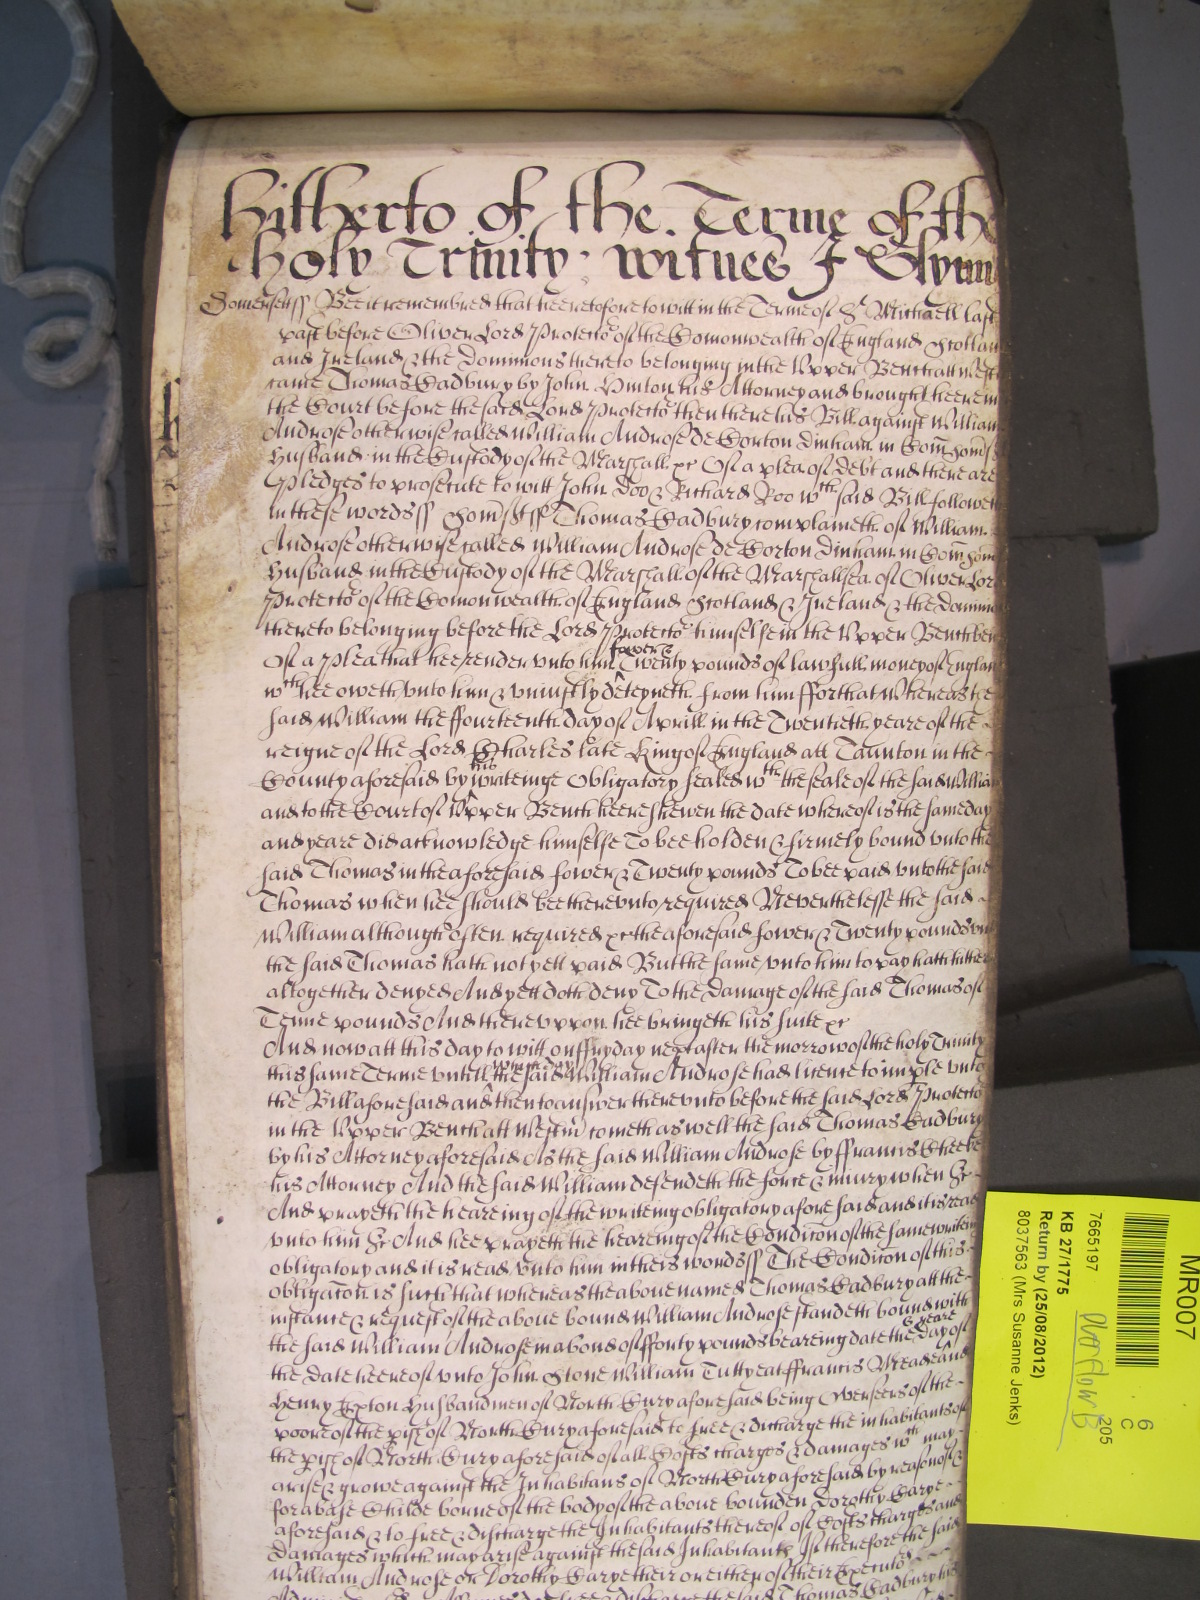 hitherto of the Terme of the
holy Trinity witnes J Glynn
Somersett ss Bee it remembred that heeretofore to witt in the Terme of St Michaell last
past before Oliver Lord Protector of the Comonwealth of England Scotland
and Ireland & the Dominions thereto belonging in the Upper Bench att
came Thomas Cadbury by John Vinton his Attorney and brought heere in
the Court before the said Lord Protector then there his Bill against William
Androse otherwise called William Androse de Corton Dinham in Com
Husband in the Custody of the Marshall &c Of a plea of debt and there are
Pledges to prosecute to witt John Doo & Richard Roo wth said Bill followeth
in these words ss Thomas Cadbury complaineth of William
Androse otherwise called William Androse de Corton Dinham in Com
Husband in the Custody of the Marshall of the Marshallsea of Oliver Lord
Protector of the Comonwealth of England Scotland & Ireland & the
thereto belonging before the Lord Protector himselfe in the Upper Bench
Of a Plea that hee render unto him fower & Twenty pounds of lawfull money of
wth hee oweth unto him & uniustly deteyneth from him ffor that Whereas the
said William the ffourteenth day of Aprill in the Twentieth yeare of the
reigne of the Lord Charles late King of England att Taunton in the
County aforesaid by his writeinge Obligatory sealed wth the seale of the said William
and to the Court of Upper Bench heere shewen the date whereof is the same day
and yeare did acknowledge himselfe To bee holden & firmely bound unto the
said Thomas in the aforesaid fower & Twenty pounds To bee paid unto the said
Thomas when hee should bee thereunto required Neverthelesse the said
William although often required &c the aforesaid fower & Twenty pounds
the said Thomas hath not yett paid But the same unto him to pay hath
altogether denyed And yett doth deny To the Damage of the said Thomas of
Tenne pounds And thereuppon hee bringeth his suite &c
And now att this day to witt on ffryday next after the morrow of the holy Trinity
this same Terme untill which day the said William Androse had licence to imple unto
the Bill aforesaid and then to answer thereunto before the said Lord Protector
in the Upper Bench att Westm cometh as well the said Thomas Cadbury
by his Attorney aforesaid As the said William Androse by ffrancis
his Attorney And the said William defendeth the force & iniury when &c
And prayeth the heareing of the writeing obligatory aforesaid and it is read
unto him &c And hee prayeth the heareing of the Condicon of the same
obligatory and it is read unto him in theis words ss The Condicon of this
obligacon is such that whereas the above named Thomas Cadbury att the
instance & request of the above bound William Androse standeth bound with
the said William Androse in a bond of fforty pounds beareing date the day & yeare of
the date heereof unto John Stone William ffrancis Meade and
Henry Husbandmen of North Cury aforesaid being Overseers of the
poore of the of North Cury aforesaid to free & discharge the inhabitants of
the of North Cury aforesaid of all Costs charges & damages wth may
arise & growe against the Inhabitans of North Cury aforesaid by reason of &
for a base Childe borne of the body of the above bounden Dorothy Carpe
aforesaid & to free & discharge the Inhabitants thereof of Costs charges and
damages which may arise against the said Inhabitants If therefore the said
William Androse or Dorothy Carpe their or either of their
MR007
6
C
205
7665197
KB 27/1775
Return by (25/08/2012)
8037563 (Mrs Susanne Jenks)